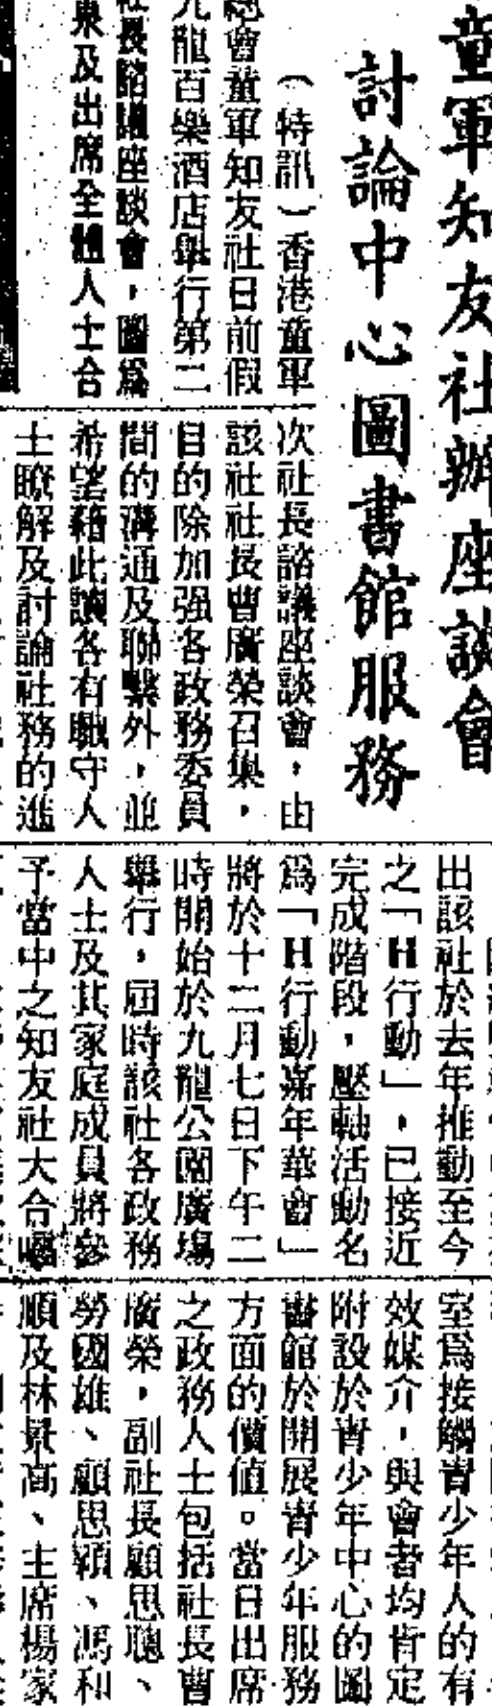 童軍知友社辦座談會
討論中心圖書館服務
（特訊）香港童軍
總會童軍知友社日前假
九龍百樂酒店舉行第二
社長諮議座談會，圖爲
及出席全體人士合
次社長諮議座談會，由
該社社長曹廣榮召集，
目的除加强各政務委員
間的溝通及聯繫外，並
希望藉此讓各有職守人
士瞭解及討論社務的進
出該社於去年推動至今
之「H行動」，已接近
完成階段，壓軸活動名
爲「H行動嘉年華會」
將於十二月七日下午二
時開始於九龍公園廣場
舉行，屆時該社各政務
人士及其家庭成員將參
予當中之知友社大合唱
室爲接觸青少年人的有
效媒介，與會者均肯定
附設於青少年中心的圖
書館於開展青少年服務
方面的價值。當日出席
之政務人士包括社長曹
廣榮，副社長顧思聰、
勞國雄、顧思穎、馮和
順及林景高、主席楊家